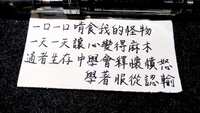 一口一口啃食我的怪物
一天一天讓心變得麻木
適者生存中學會釋懷憤怒
學著服從認輸